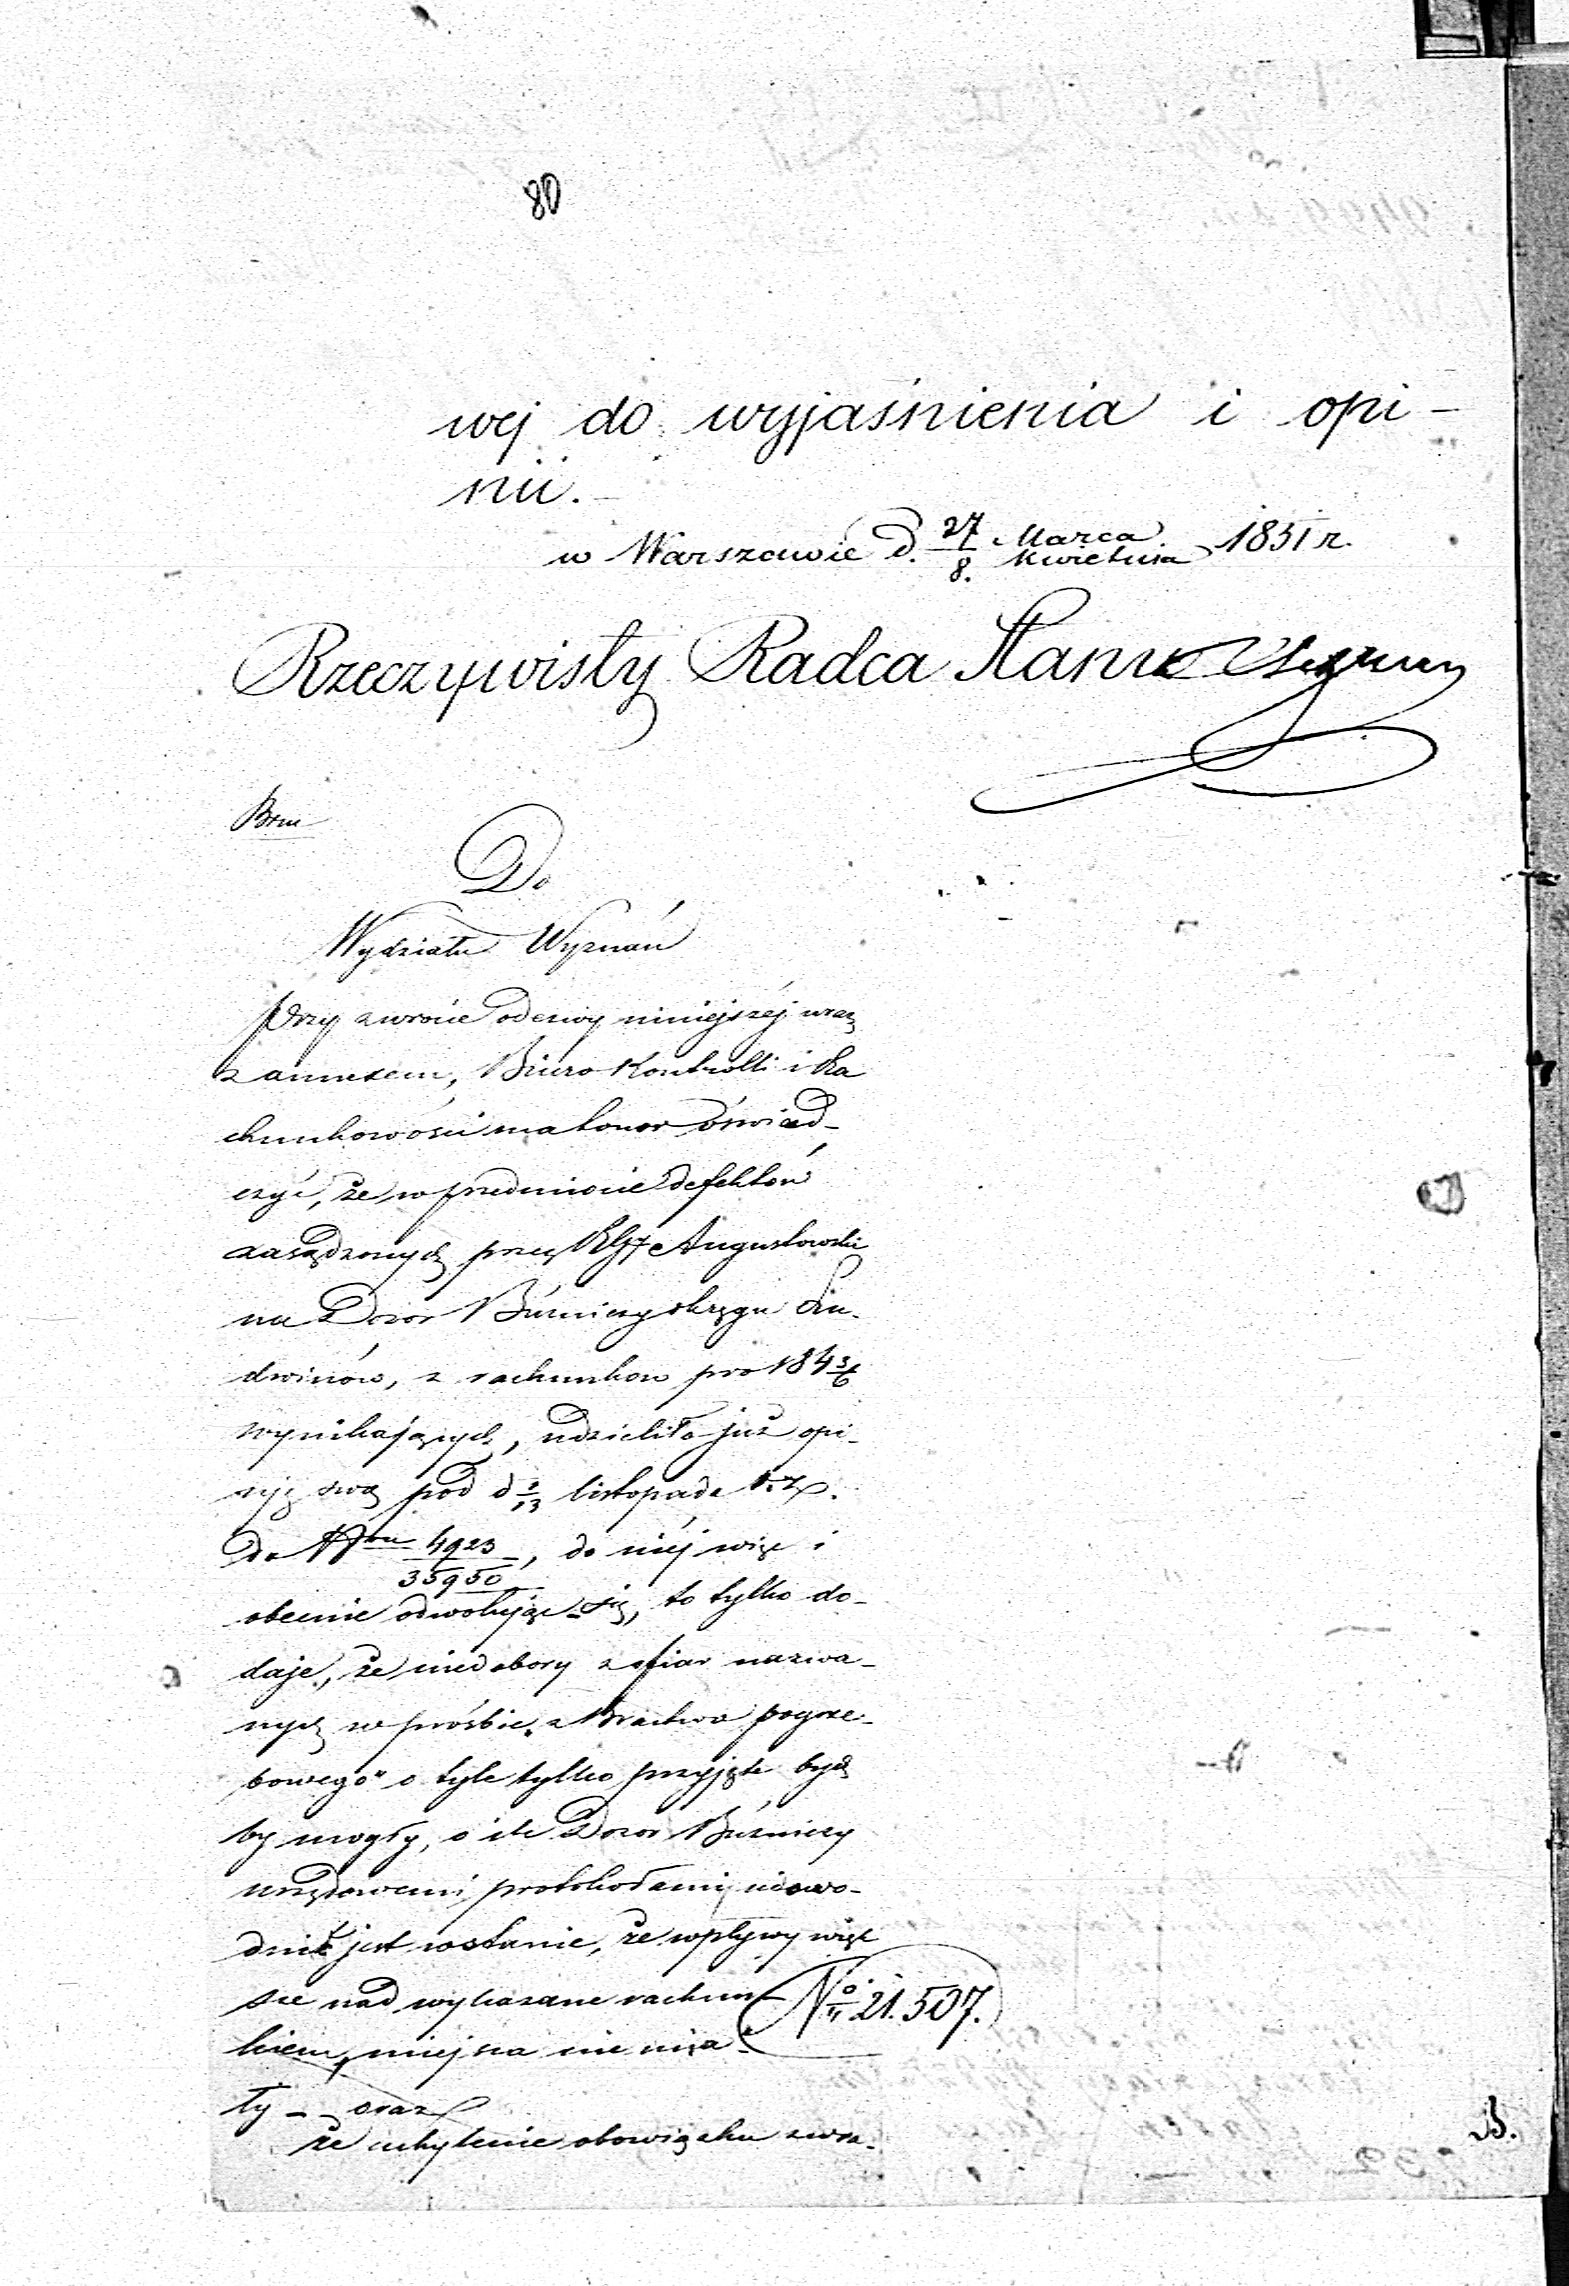 80
wej do wyjaśnienia i opi-
nii.-
w Warszawie d. 27/8. Marca/Kwietnia 1851 r.
Rzeczywisty Radca Stanu
Do
Wydziału Wyznań
Przy zwrocie odezwy niniejszéj wraz
z annexem, Biuro Kontrolli i Ra
chunkowości ma honor oświad-
czyć, że w przedmiocie defektów
zasądzonych przez RGn Augustowski
na Dozor Bużniczy okręgu Lu-
dwinów, z rachunków pro 184 3/6
wynikających, udzieliło już opi-
niję swą pod d 1/13 listopada r. z.
do Nru 4923/35950, do niéj więc i
obecnie odwołując się, to tylko do-
daje, że niedobory z ofiar nazwa-
nych w prośbie „z Bractwa pogrze-
bowego" o tyle tylko przyjęte być
by mogły, o ile Dozor Bużniczy
urzędowemi protokołami udowo-
dnić jest w stanie, że wpływy więk
sze nad wykazane rachun-
kiem, miejsca nie mia-
ły - oraz
że uchylenie obowiązku zwra-
No 21.507.